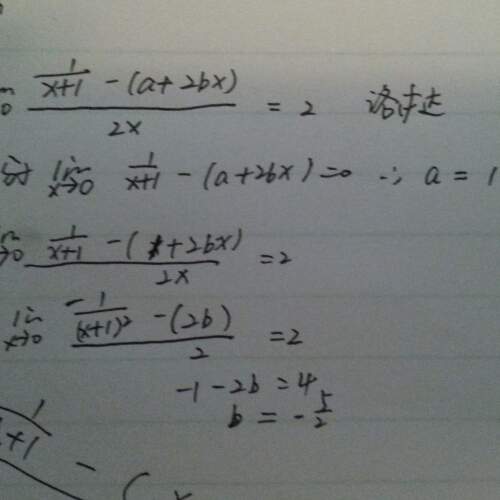 lim x→0 (1/(x+1) - (a+2bx))/(2x) = 2 洛必达
lim x→0 1/(x+1) - (a+2bx) = 0 ∴ a = 1
lim x→0 (1/(x+1) - (1+2bx))/(2x) = 2
lim x→0 (-1/(x+1)² - (2b))/2 = 2
-1 - 2b = 4
b = -5/2